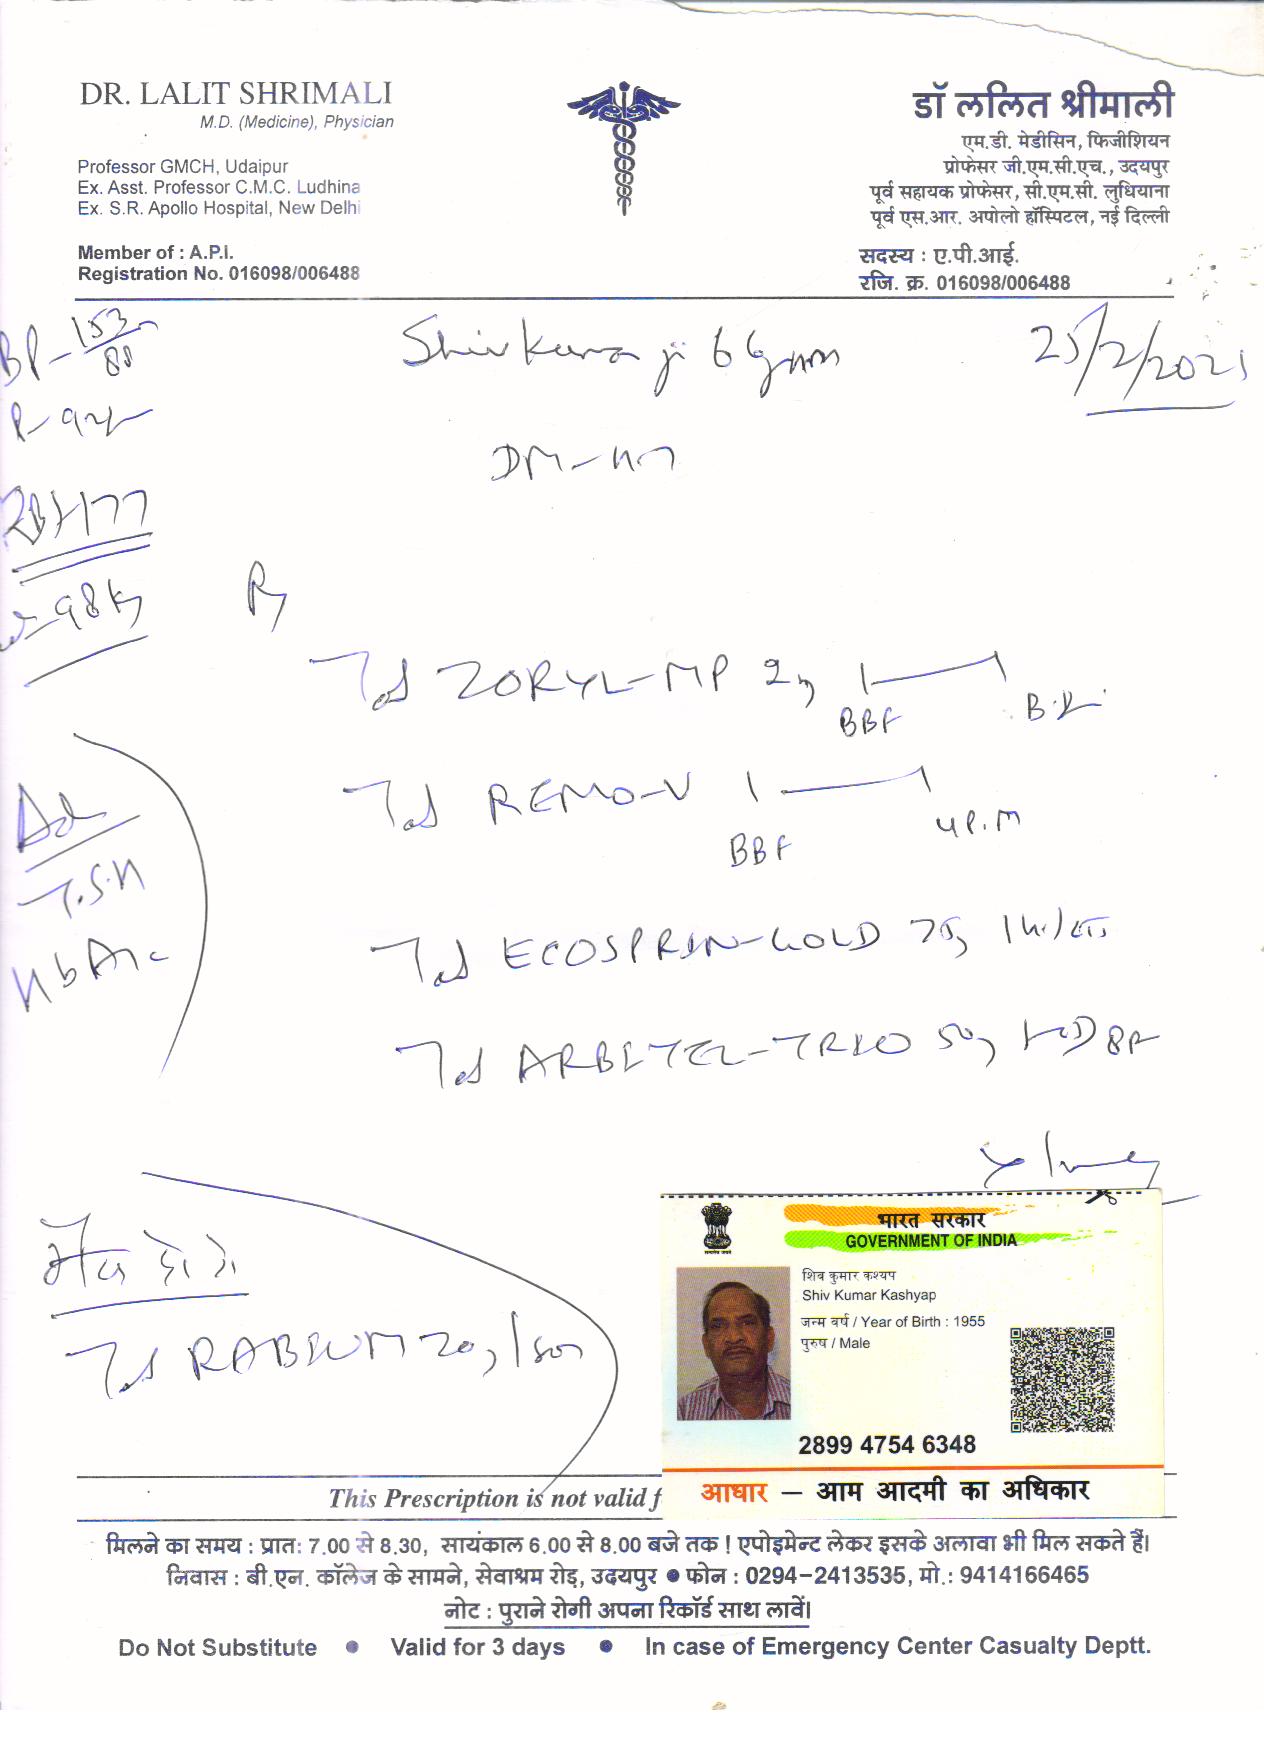 DR. LALIT SHRIMALI
M.D. (Medicine), Physician
Professor GMCH, Udaipur
Ex. Asst. Professor C.M.C. Ludhina
Ex. S.R. Apollo Hospital, New Delhi
Member of : A.P.I.
Registration No. 016098/006488
डॉ ललित श्रीमाली
एम.डी. मेडीसिन, फिजीशियन
प्रोफेसर जी.एम.सी.एच., उदयपुर
पूर्व सहायक प्रोफेसर, सी.एम.सी. लुधियाना
पूर्व एस.आर. अपोलो हॉस्पिटल, नई दिल्ली
सदस्य : ए.पी.आई.
रजि. क्र. 016098/006488
BP - 153/88
Shiv Kumar ji 66 25/2/2021
DM - HT
177
98 Kg
Rx
Tab ZORYL-MP 2mg 1 — 1
BBF
Tab REMO-V 1 — 1
BBF 4 P.M
Adv
T.S.H
HbA1c
Tab ECOSPRIN-GOLD 75mg
Tab ARBITEL-TRIO 50mg 1-OD
Tab RABIUM 20mg
भारत सरकार
GOVERNMENT OF INDIA
शिव कुमार कश्यप
Shiv Kumar Kashyap
जन्म वर्ष / Year of Birth : 1955
पुरुष / Male
2899 4754 6348
आधार – आम आदमी का अधिकार
This Prescription is not valid f
मिलने का समय : प्रात: 7.00 से 8.30, सायंकाल 6.00 से 8.00 बजे तक ! एपोइमेन्ट लेकर इसके अलावा भी मिल सकते हैं।
निवास : बी.एन. कॉलेज के सामने, सेवाश्रम रोड़, उदयपुर ● फोन : 0294-2413535, मो.: 9414166465
नोट : पुराने रोगी अपना रिकॉर्ड साथ लावें।
Do Not Substitute ● Valid for 3 days ● In case of Emergency Center Casualty Deptt.